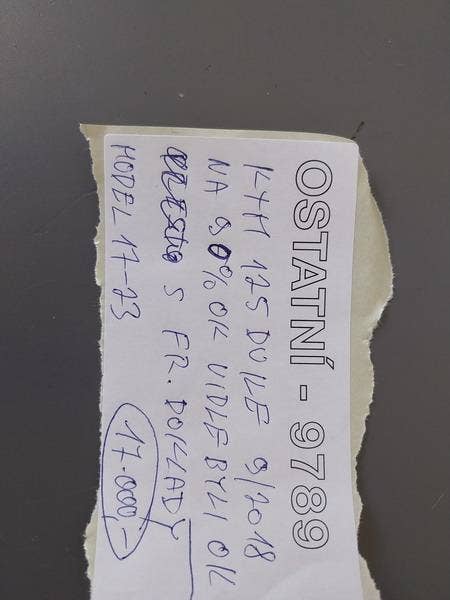 OSTATNÍ - 9789
KTM 125 DUKE 9/2018
NA 90% OK VIDLE BYLI OK
S FR. DOKLADY
MODEL 17-23 17.000,-